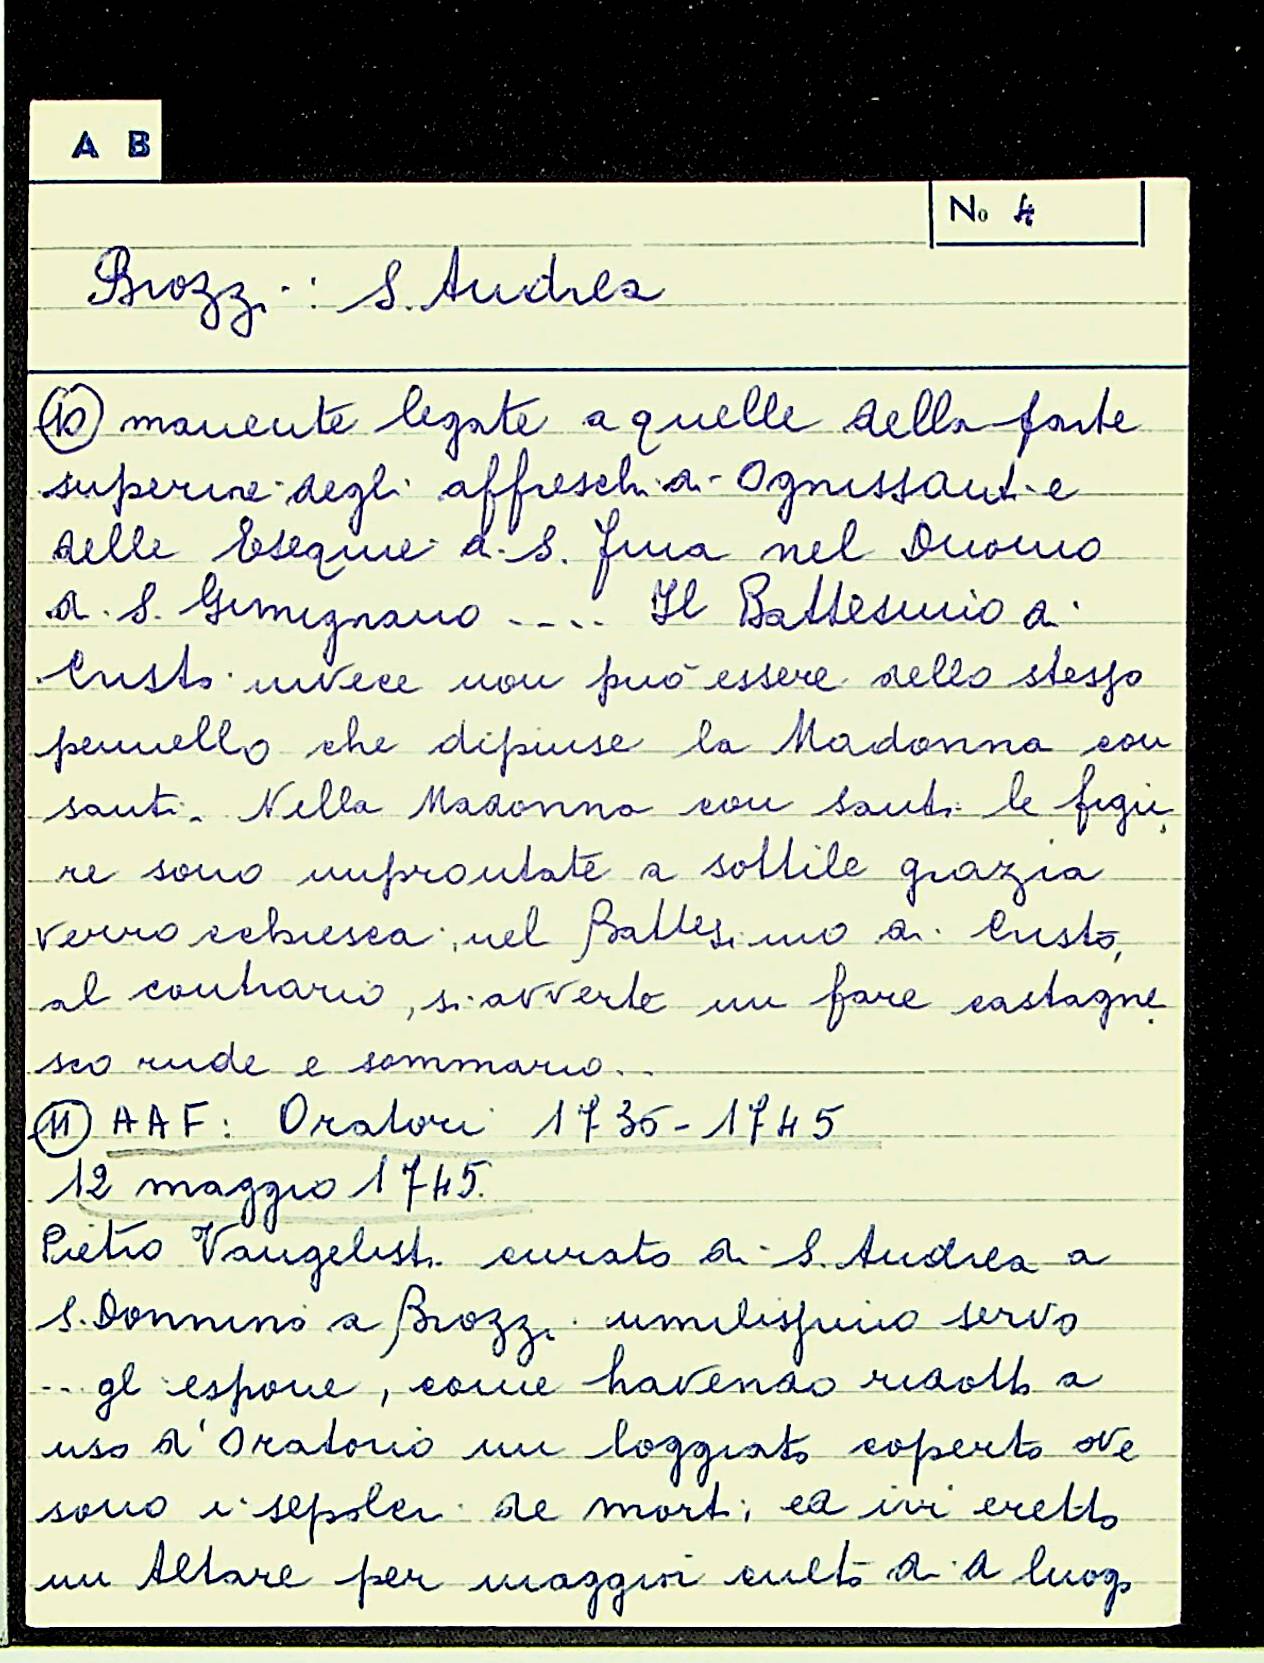 A B
No 4
Brozzi: S. Andrea
(10) manente legate a quelle della parte
superiore degli affreschi di Ognissanti e
delle Esequie di S. Fina nel Duomo
di S. Gimignano .... Il Battesimo di
Cristo invece non può essere dello stesso
pennello che dipinse la Madonna con
santi. Nella Madonna con santi le figu
re sono improntate a sottile grazia
verrocchiesca; nel Battesimo di Cristo,
al contrario, si avverte un fare castagne
sco rude e sommario..
(11) AAF: Oratori 1736-1745
12 maggio 1745.
Pietro Vangelisti curato di S. Andrea a
S. Donnino a Brozzi umilissimo servo
... gl espone, come havendo ridotto a
uso d'Oratorio un loggiato coperto ove
sono i sepolcri de morti, ed ivi eretto
un Altare per maggior culto di d luogo